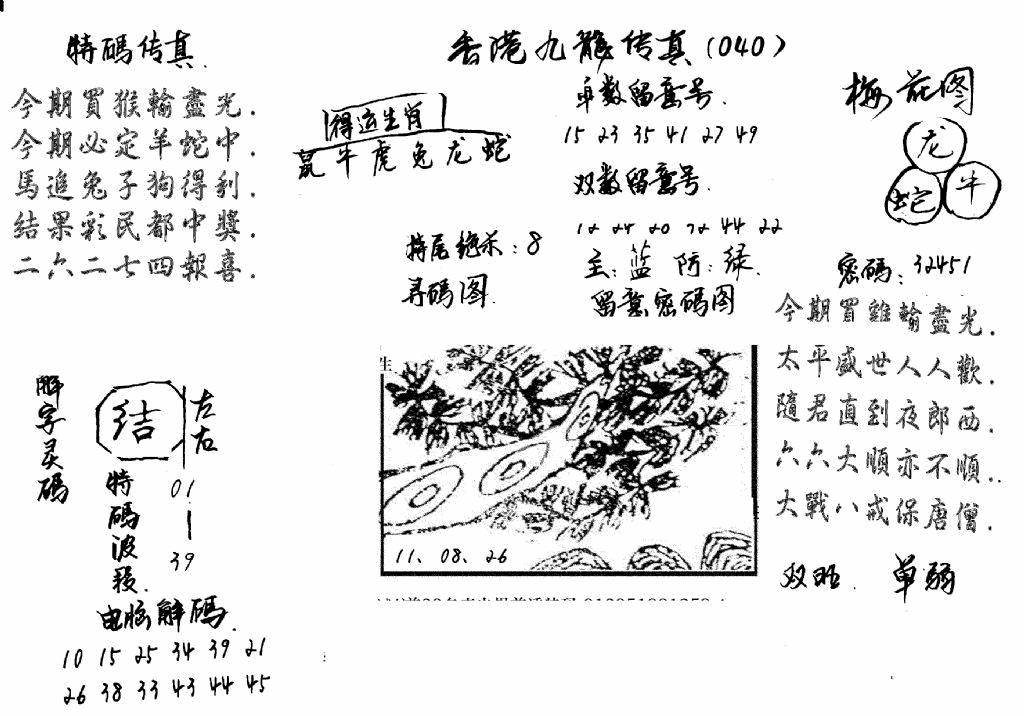 香港九龍传真(040)
特碼传真.
今期買猴輸盡光.
今期必定羊蛇中.
馬追兔子狗得利.
结果彩民都中獎.
二六二七四報喜.
得运生肖
鼠牛虎兔龙蛇
单数留意号.
15 23 35 41 27 49
双数留意号.
44 22
特尾绝杀:8
主:蓝 防:绿.
寻码图.
留意密码图
梅花图
龙
蛇 牛
密碼:32451
今期買雞輸盡光.
太平盛世人人歡.
隨君直到夜郎西.
六六大順亦不順..
大戰八戒保唐僧.
双旺. 单弱
解字灵碼
结
左右
特碼波段.
01
39
生
11、08、26
电脑解碼.
10 15 25 34 39 21
26 38 33 43 44 45